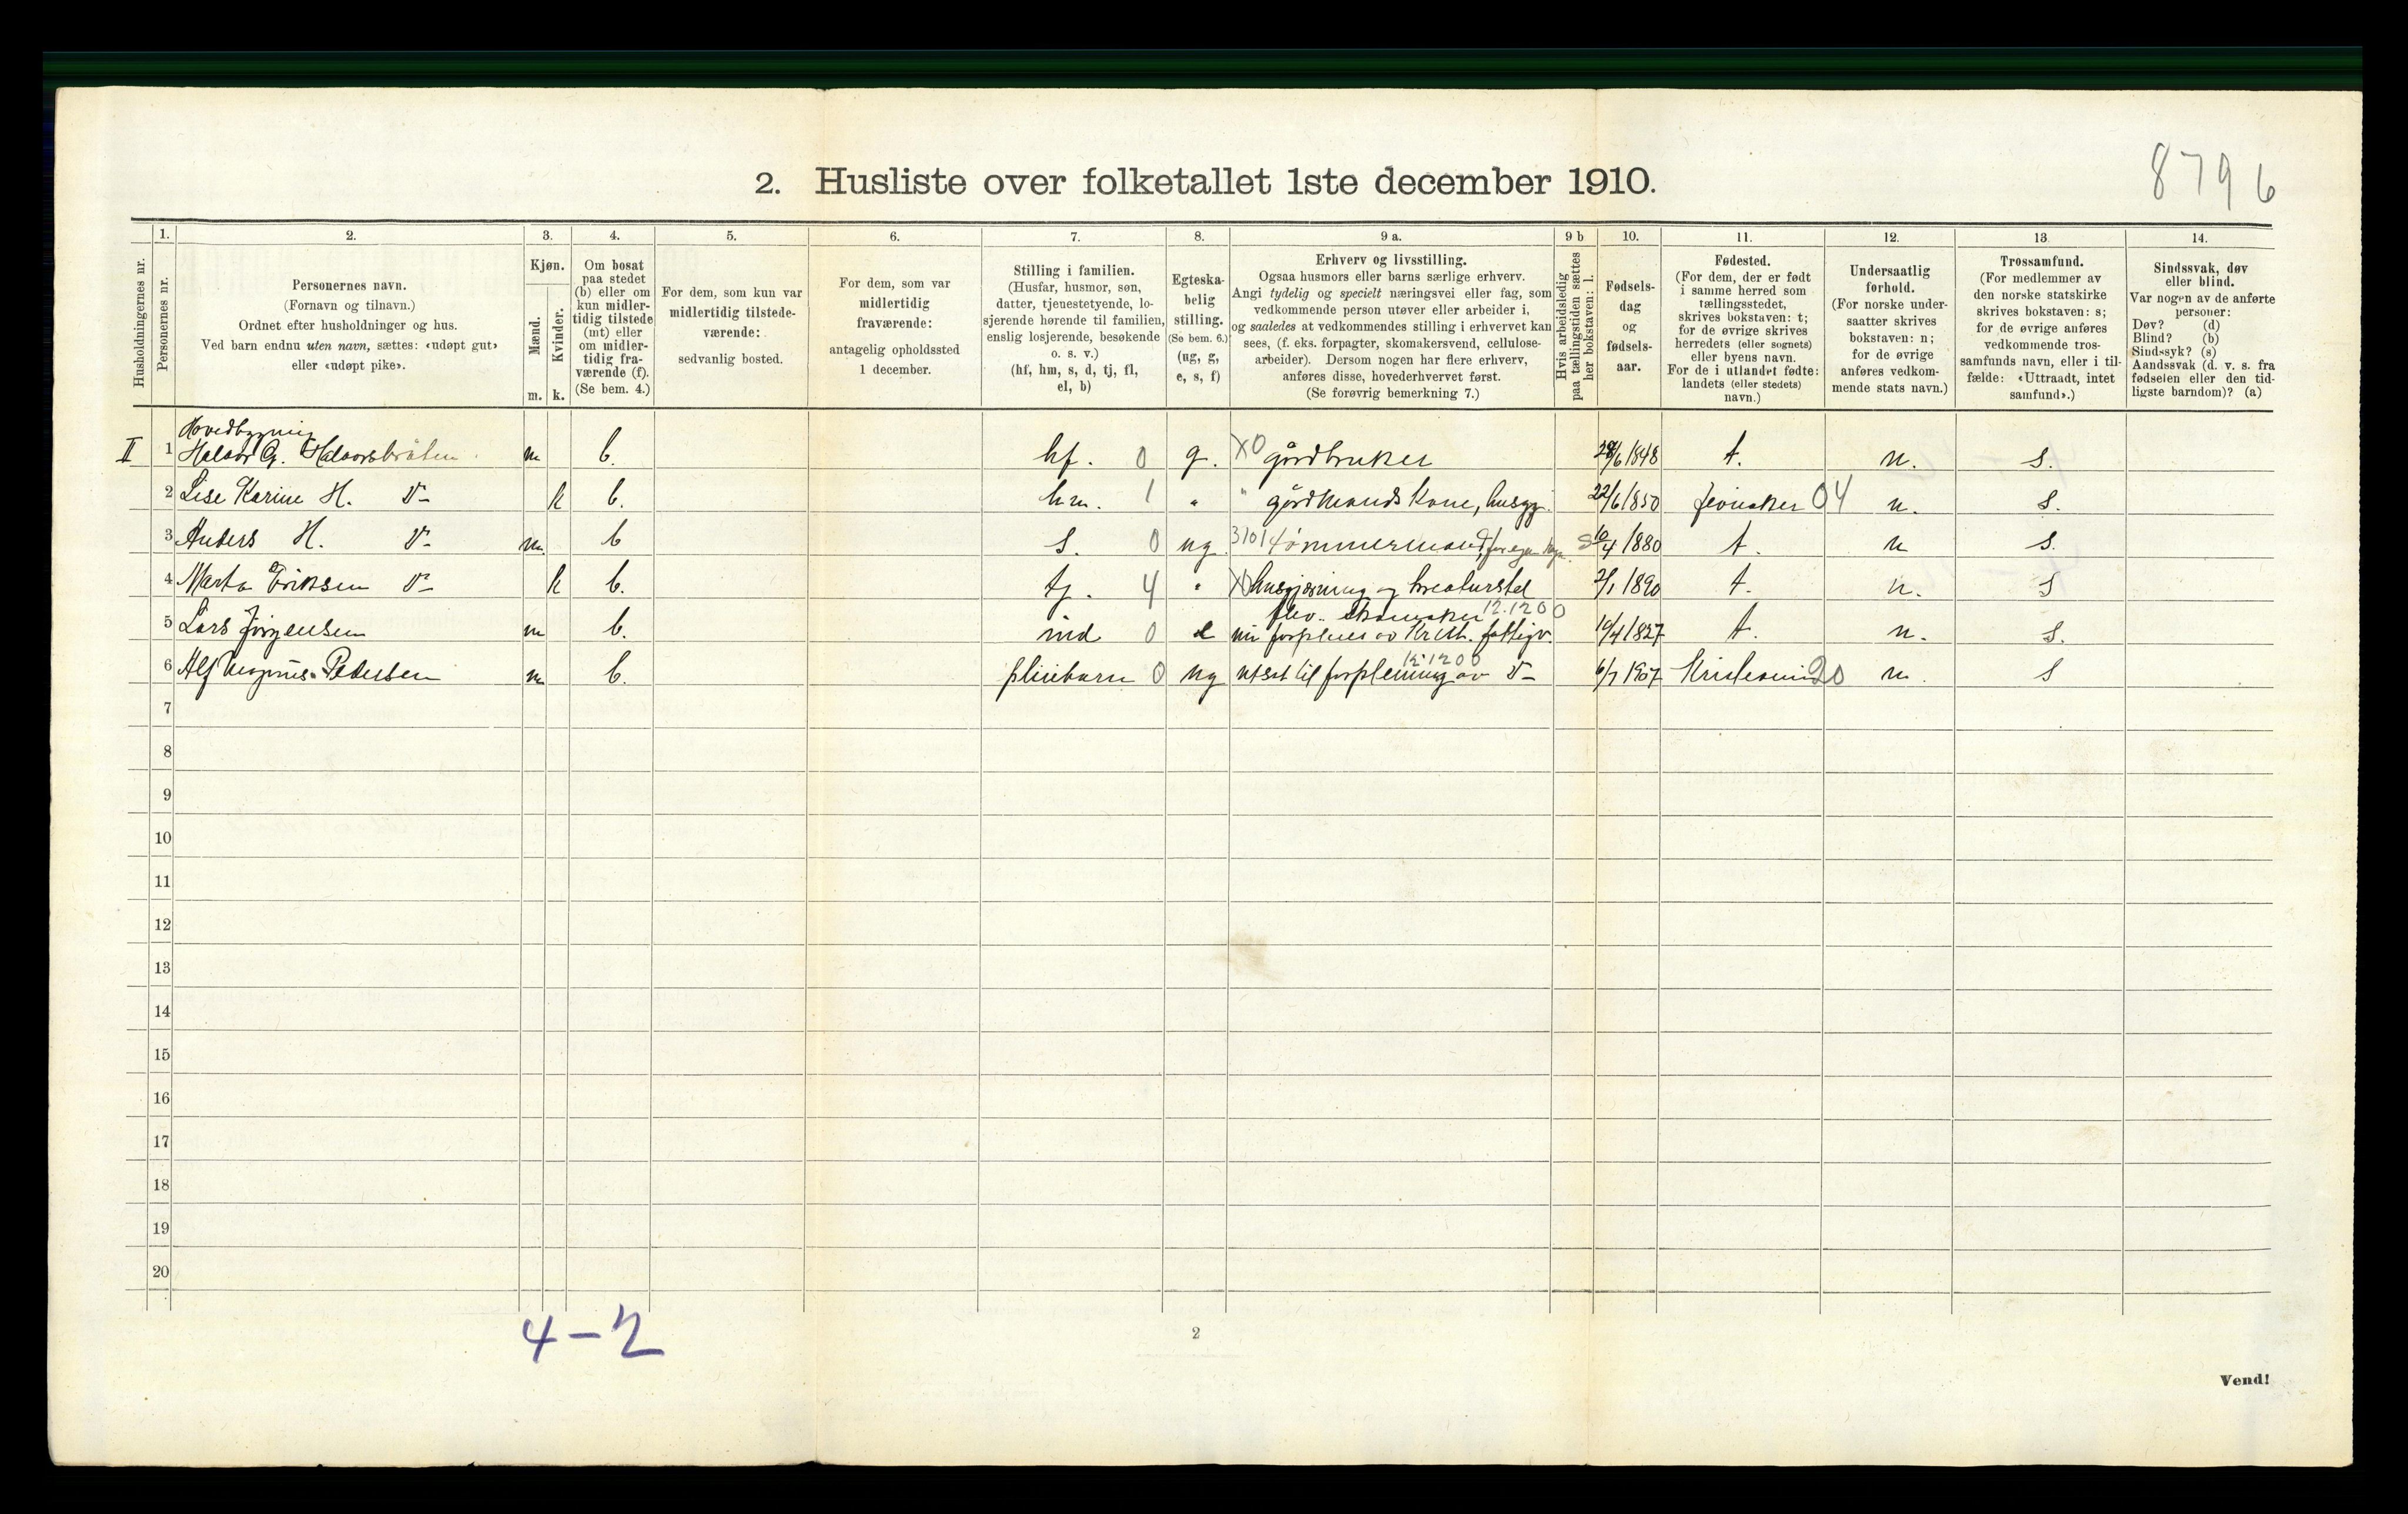 8796
2. Husliste over folketallet 1ste december 1910.
Husholdningernes nr.
1.
Personernes nr.
2.
Personernes navn.
(Fornavn og tilnavn.)
Ordnet efter husholdninger og hus.
Ved barn endnu uten navn, sættes: «udøpt gut»
eller «udøpt pike».
3.
Kjøn.
Mænd.
Kvinder.
m. k.
4.
Om bosat
paa stedet
(b) eller om
kun midler-
tidig tilstede
(mt) eller
om midler-
tidig fra-
værende (f).
(Se bem. 4.)
5.
For dem, som kun var
midlertidig tilstede-
værende:
sedvanlig bosted.
6.
For dem, som var
midlertidig
fraværende:
antagelig opholdssted
1 december.
7.
Stilling i familien.
(Husfar, husmor, søn,
datter, tjenestetyende, lo-
sjerende hørende til familien,
enslig losjerende, besøkende
o. s. v.)
(hf, hm, s, d, tj, fl,
el, b)
8.
Egteska-
belig
stilling.
(Se bem. 6.)
(ug, g,
e, s, f)
9 a.
Erhverv og livsstilling.
Ogsaa husmors eller barns særlige erhverv.
Angi tydelig og specielt næringsvei eller fag, som
vedkommende person utøver eller arbeider i,
og saaledes at vedkommendes stilling i erhvervet kan
sees, (f. eks. forpagter, skomakersvend, cellulose-
arbeider). Dersom nogen har flere erhverv,
anføres disse, hovederhvervet først.
(Se forøvrig bemerkning 7.)
9 b
Hvis arbeidsledig
paa tællingstiden sættes
her bokstaven: l.
10.
Fødsels-
dag
og
fødsels-
aar.
11.
Fødested.
(For dem, der er født
i samme herred som
tællingsstedet,
skrives bokstaven: t;
for de øvrige skrives
herredets (eller sognets)
eller byens navn.
For de i utlandet fødte:
landets (eller stedets)
navn.)
12.
Undersaatlig
forhold.
(For norske under-
saatter skrives
bokstaven: n;
for de øvrige
anføres vedkom-
mende stats navn.)
13
Trossamfund.
(For medlemmer av
den norske statskirke
skrives bokstaven: s;
for de øvrige anføres
vedkommende tros-
samfunds navn, eller i til-
fælde: «Uttraadt, intet
samfund».)
14.
Sindssvak, døv
eller blind.
Var nogen av de anførte
personer:
Døv? (d)
Blind? (b)
Sindssyk? (s)
Aandssvak (d. v. s. fra
fødselen eller den tid-
ligste barndom)? (a)
Hovedbygning
II 1 Halvor G. Halvorsbråten m b. hf. 0 g. X0 gårdbruker /6 1848 t. n. s.
2 Lise Karine H. D- k b. hm. 1 " " gårdmands kone, husgj. 22/6 1850 Jevnaker 04 n. s.
3 Anders H. D- m. b s. 0 ug 3101 tømmermand, for egen 10/4 1880 t. n s.
4 Marta Eriksen D- k b. tj. 4 " X0 husgjerning og kreaturstel 2/1 1890 t. n. s
5 Lars Jörgensen m b. ind 0 e flev. skomaker 12.1200
nu forpleies av Krist. fattigv. 10/4 1827 t. n. s.
6 Alf Magnus Pedersen m b. pleiebarn 0 ug utsat til forpleining av D- 12.1200 6/7 1907 Kristiania 20 n. s
7
8
9
10
11
12
13
14
15
16
17
18
19
20
4-2
2
Vend!